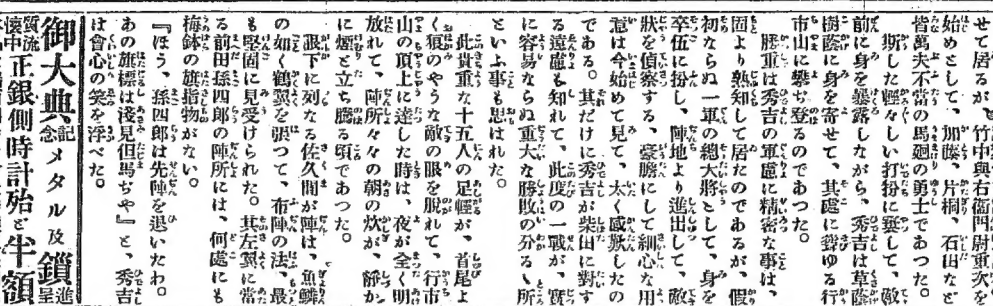 せて居るが、竹中與右衞門尉重次を
始めとして、加藤、片桐、石田など
皆萬夫不當の馬廻の勇士であつた。
斯した輕々しい打扮に窶して、敵
前に身を暴露しながら、秀吉は草蔭
樹蔭に身を寄せて、其處に聳ゆる行
市山に攀ぢ登るのであつた。
勝重は秀吉の軍慮に精密な事は、
固より熟知して居たのであるが、假
初ならぬ一軍の總大將として、身を
卒伍に扮し、陣地より進出して、敵
狀を偵察する、豪膽にして細心な用
意は今始めて見て、太く感歎したの
である。其だけに秀吉が柴田に對す
る遠慮も知れて、此度の一戰が、實
に容易ならぬ重大な勝敗の分るゝ所
といふ事も思はれた。
此貴重な十五人の足輕が、首尾よ
く猿のやうな敵の眼を脫れて、行市
山の頂上に達した時は、夜が全く明
放れて、陣所々々の朝の炊が、靜か
に煙と立ち騰る頃であつた。
眼下に列なる佐久間が陣は、魚鱗
の如く鶴翼を張つて、布陣の法、最
も堅固に見受けられた。其左翼に當
る前田孫四郎の陣所には、何處にも
梅鉢の旗指物がない。
『ほう、孫四郎は先陣を退いたわ。
あの旗標は淺見但馬ぢや』と、秀吉
は會心の笑を浮べた。
御大典記念メタル及鎖進呈
質流懷中正銀側時計殆ど半額